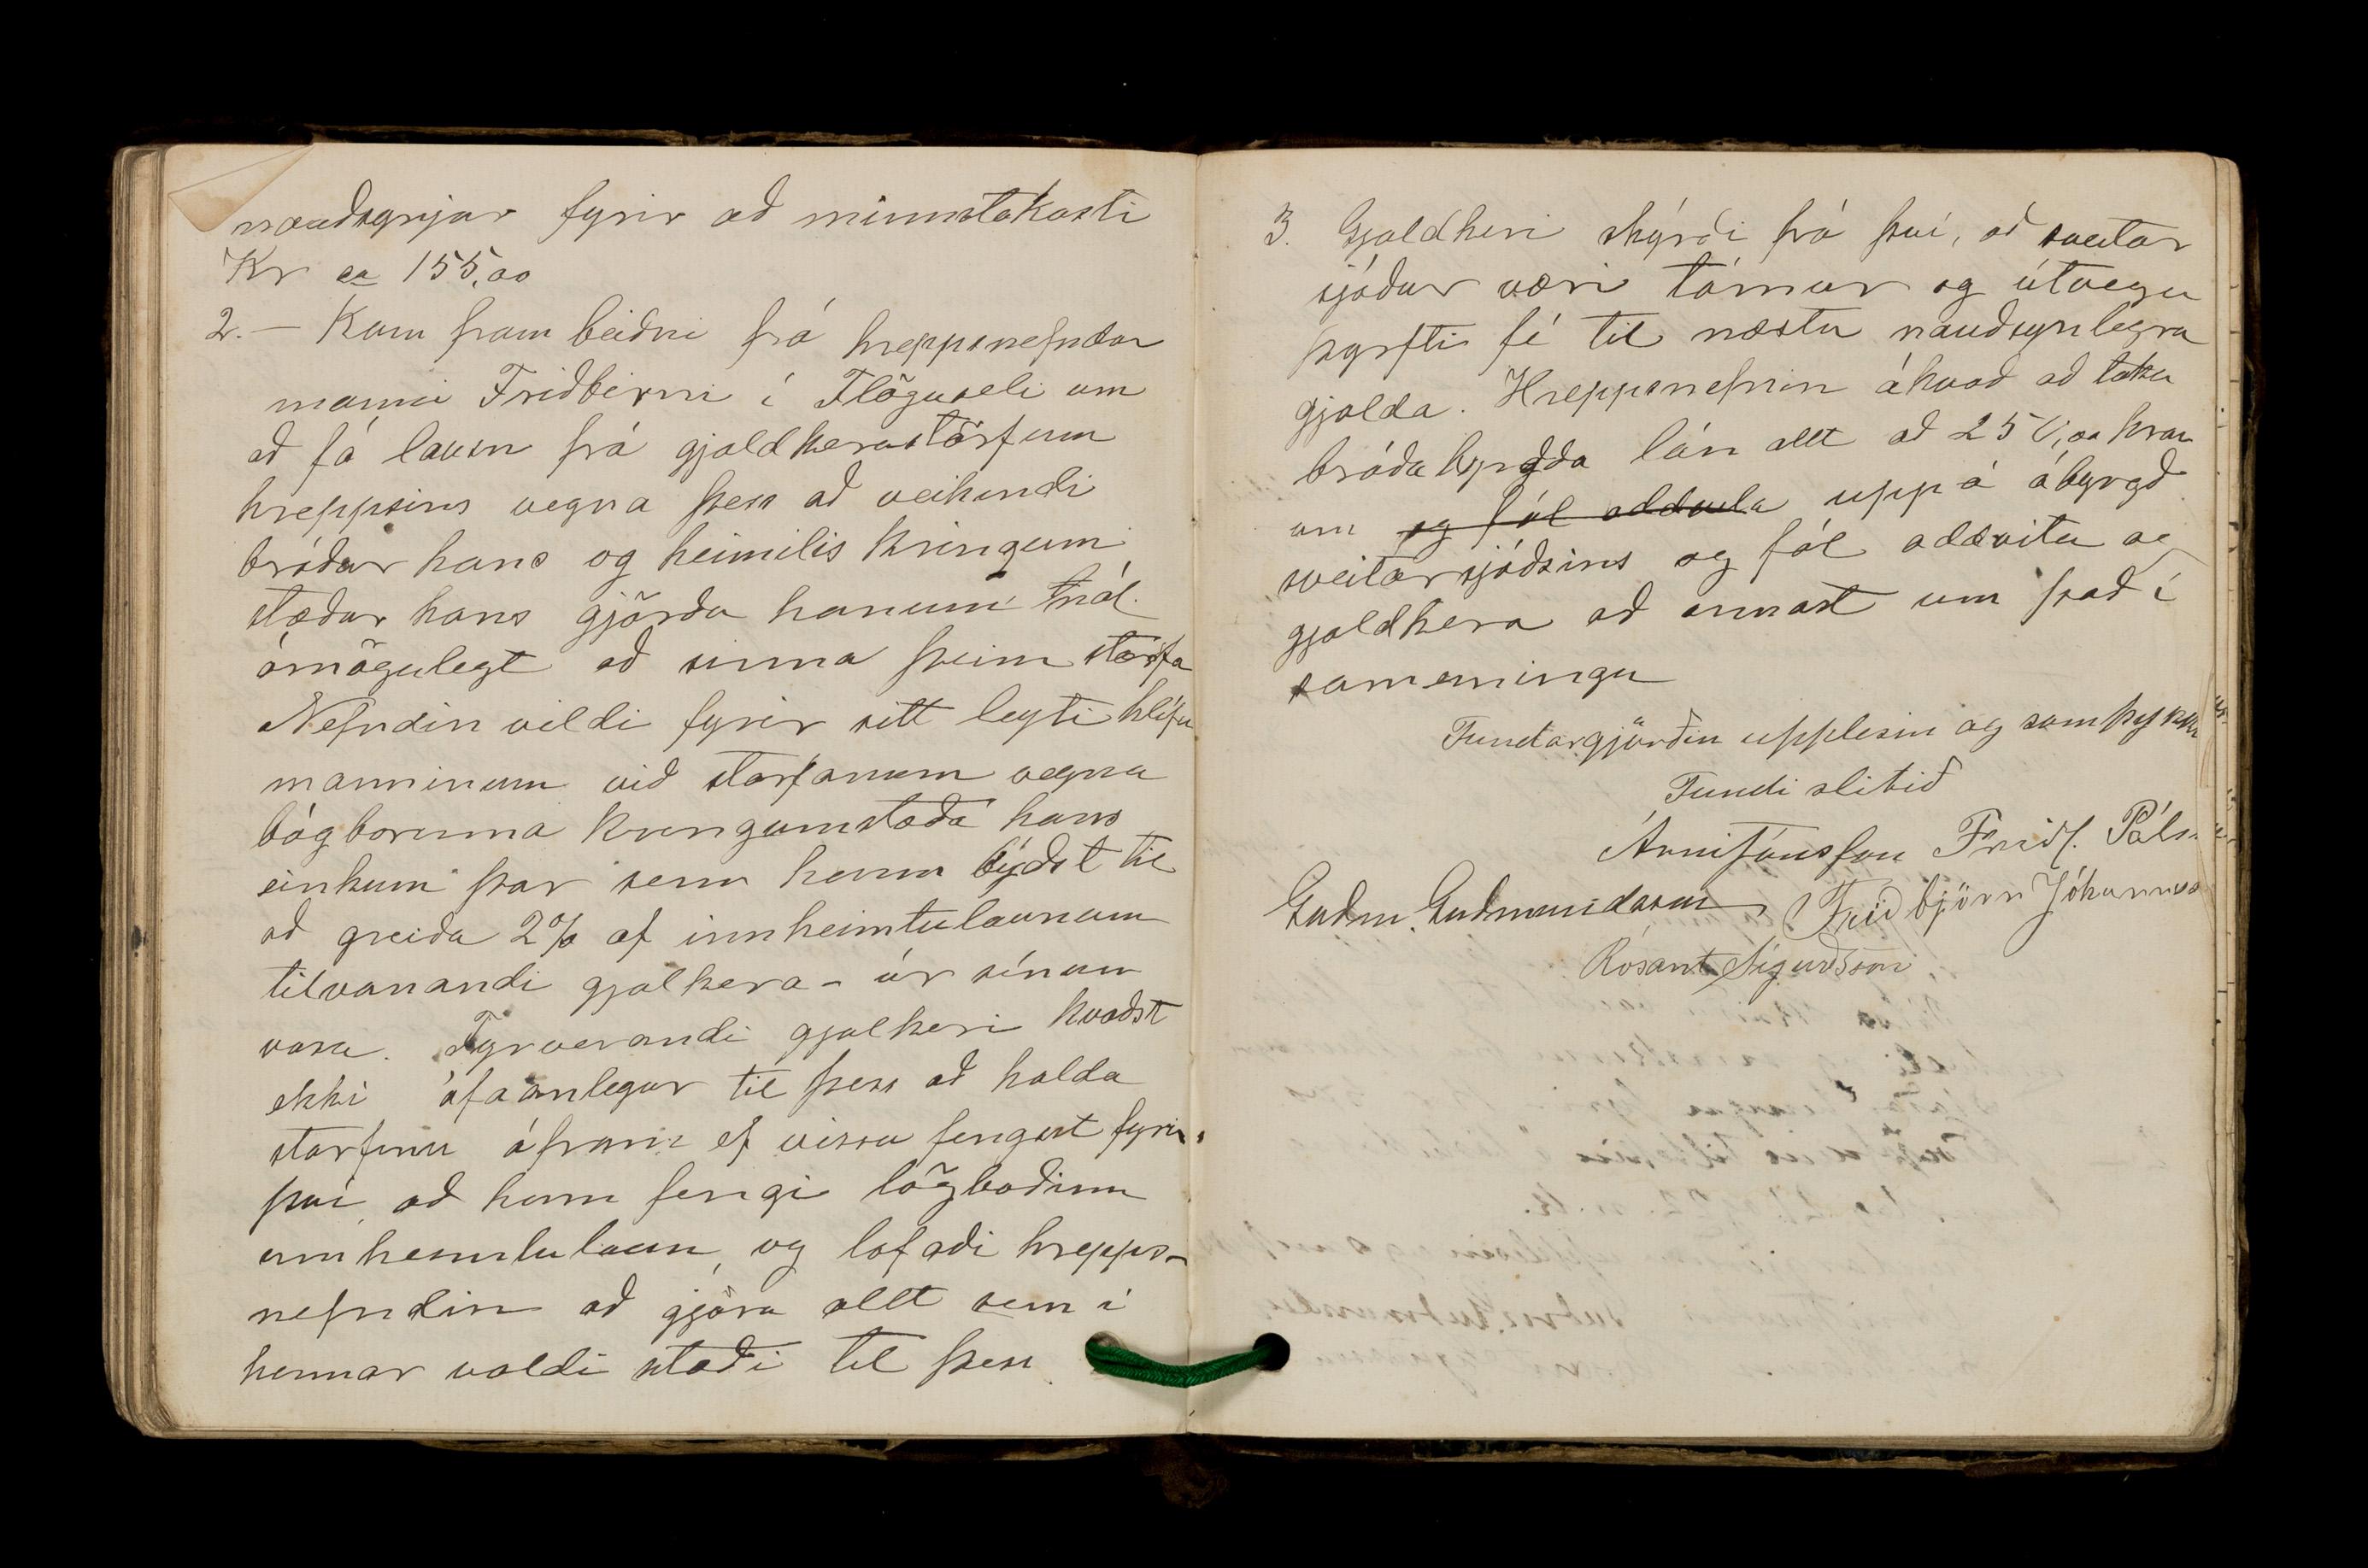 nauðsynjar fyrir að minnstakosti
Kr ca 155,00
2. – Kom fram beiðni frá hreppsnefndar
manni Friðbirni í Flöguseli um
að fá lausn frá gjaldkerastörfum
hreppsins vegna þess að veikindi
bróður hans og heimilis kringum
stæður hans gjörðu honum nál.
ómögulegt að sinna þeim starfa
Nefndin vildi fyrir sitt leyti hlífa
manninum við starfanum vegna
bágborinna kringumstæða hans
einkum þar sem hann býðst til
að greiða 2% af innheimtulaunum
tilvonandi gjalkera – úr sínum
vasa. Fyrverandi gjalkeri kvaðst
ekki ófáanlegur til þess að halda
starfinu áfram ef vissa fengist fyrir
því að hann fengi lögboðinn
innheimtulaun, og lofaði hrepps-
nefndin að gjöra allt sem í
hennar valdi stæði til þess.
3. Gjaldkeri skýrði frá því, að sveitar
sjóður væri tómur og útvega
þyrfti fé til næstu nauðsynlegra
gjalda. Hreppsnefnin ákvað að taka
bráðabyrgða lán allt að 250,00 krón
um og fól oddvita uppá ábyrgð
sveitarsjóðsins og fól oddvita og
gjaldkera að annast um það í
sameiningu
Fundargjörðin upplesin og samþykkt
Fundi slitið
Árni Jónsson Friðf. Pálss.
Guðm. Guðmundsson Friðbjörn Jóhannss
Rósant Sigurðsson